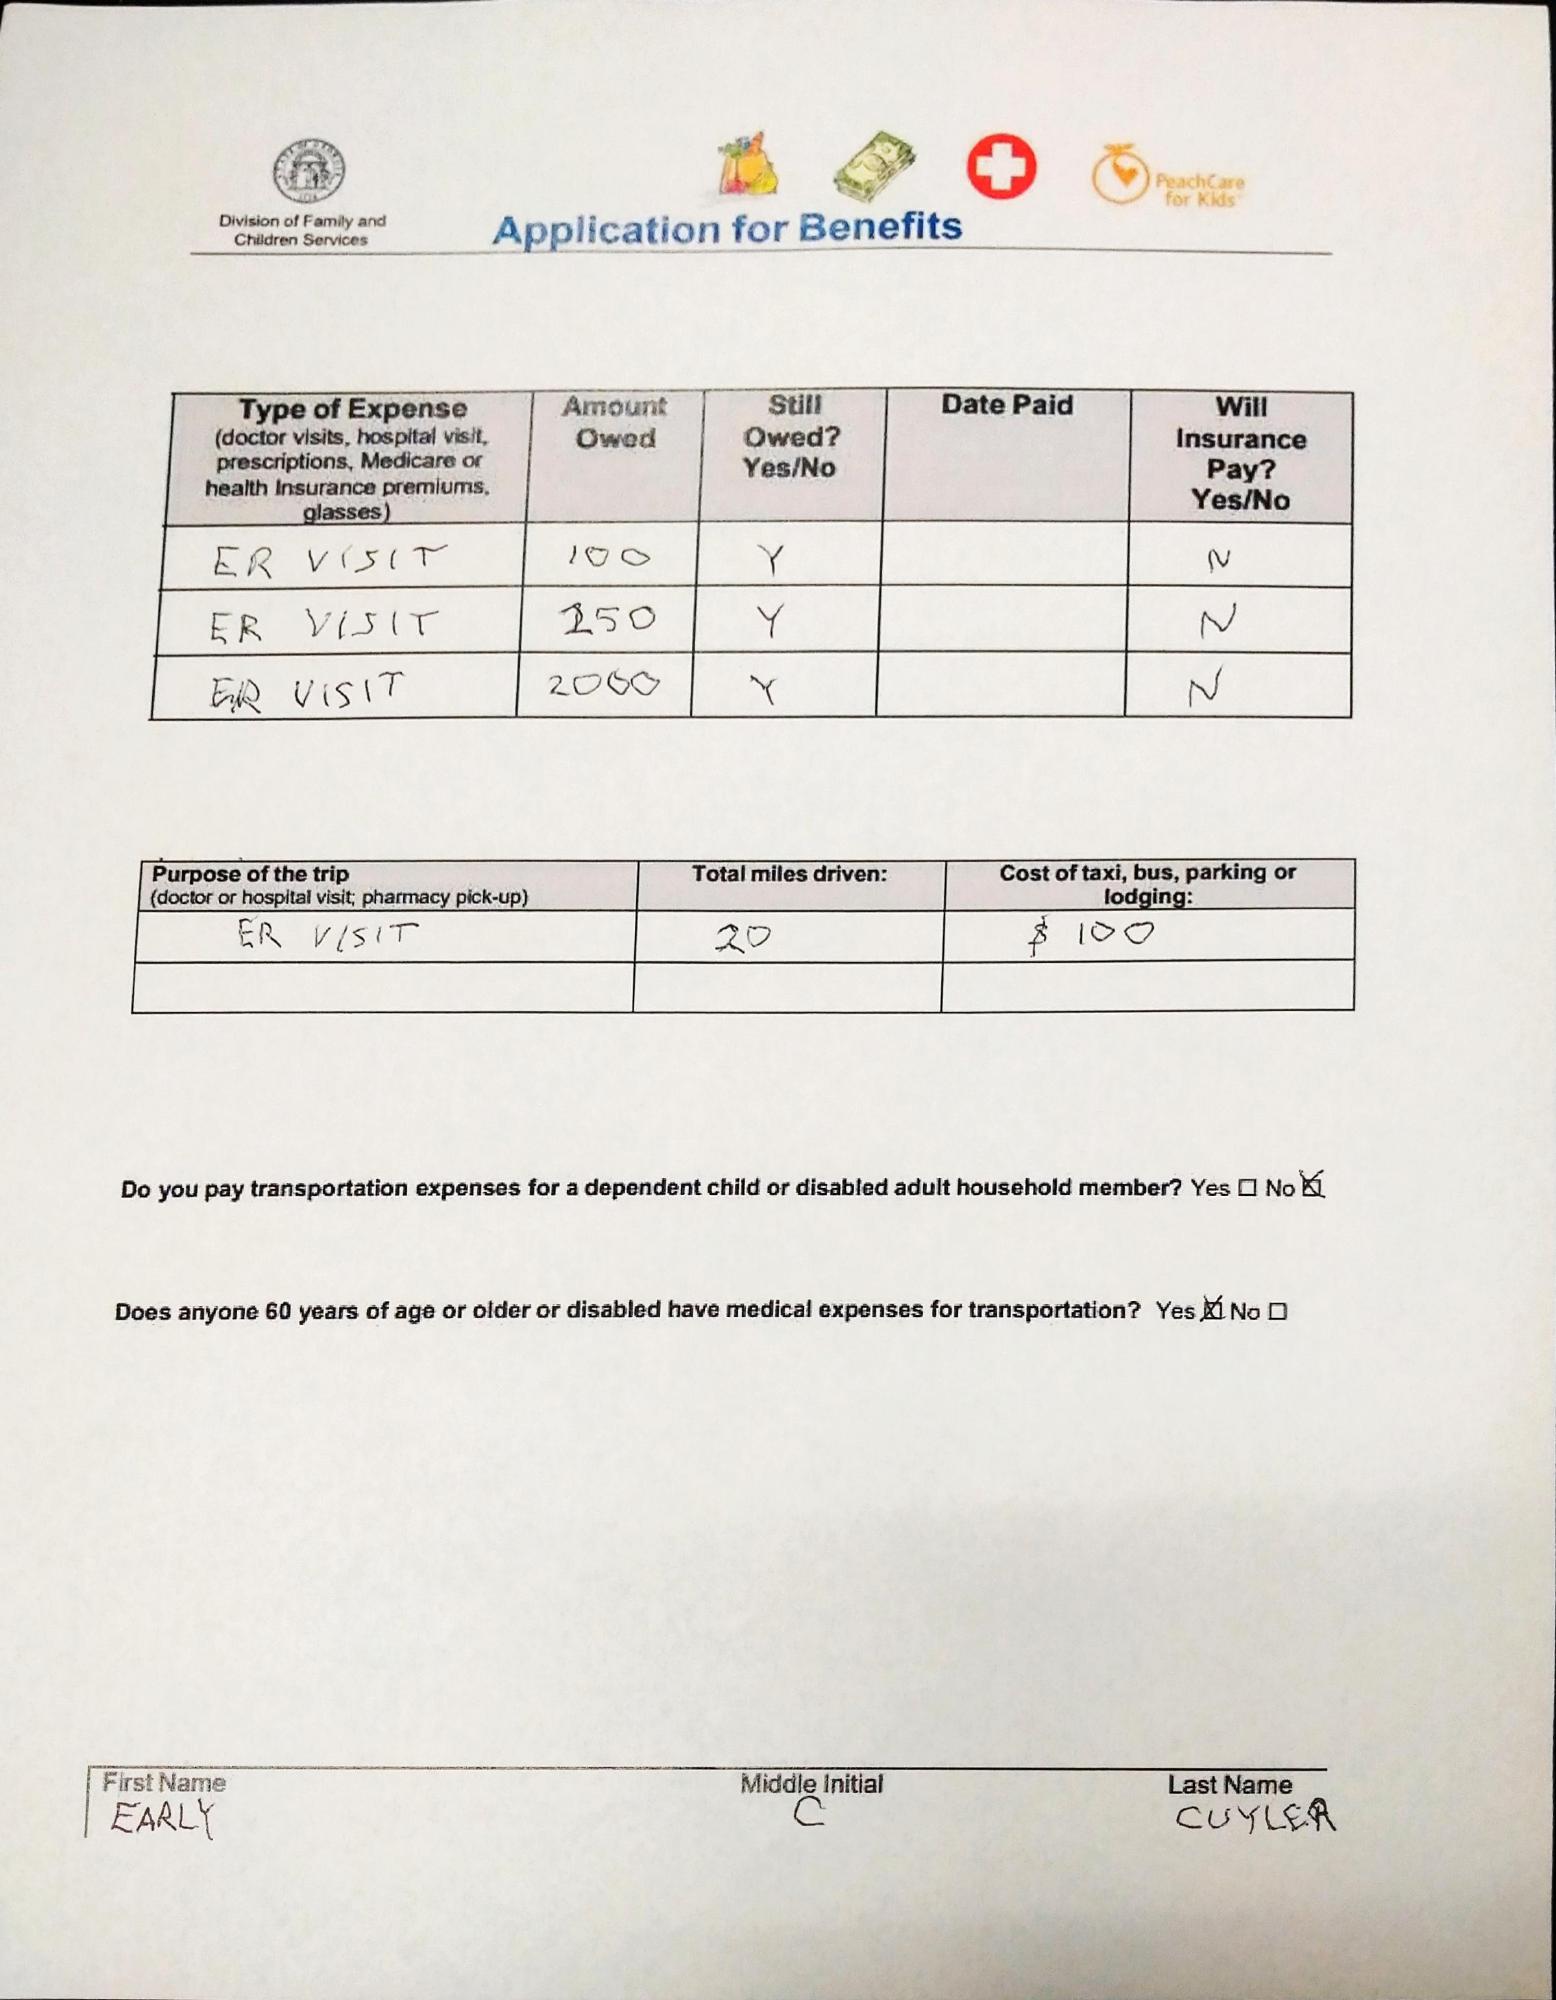 Division of Family and
Children Services
Application for Benefits
PeachCare
for Kids
Type of Expense
(doctor visits, hospital visit,
prescriptions, Medicare or
health Insurance premiums,
glasses)
Amount
Owed
Still
Owed?
Yes/No
Date Paid
Will
Insurance
Pay?
Yes/No
ER VISIT 100 Y N
ER VISIT 250 Y N
ER VISIT 2000 Y N
Purpose of the trip
(doctor or hospital visit; pharmacy pick-up)
Total miles driven:
Cost of taxi, bus, parking or
lodging:
ER VISIT 20 $ 100
Do you pay transportation expenses for a dependent child or disabled adult household member? Yes ☐ No ☒
Does anyone 60 years of age or older or disabled have medical expenses for transportation? Yes ☒ No ☐
First Name Middle Initial Last Name
EARLY C CUYLER